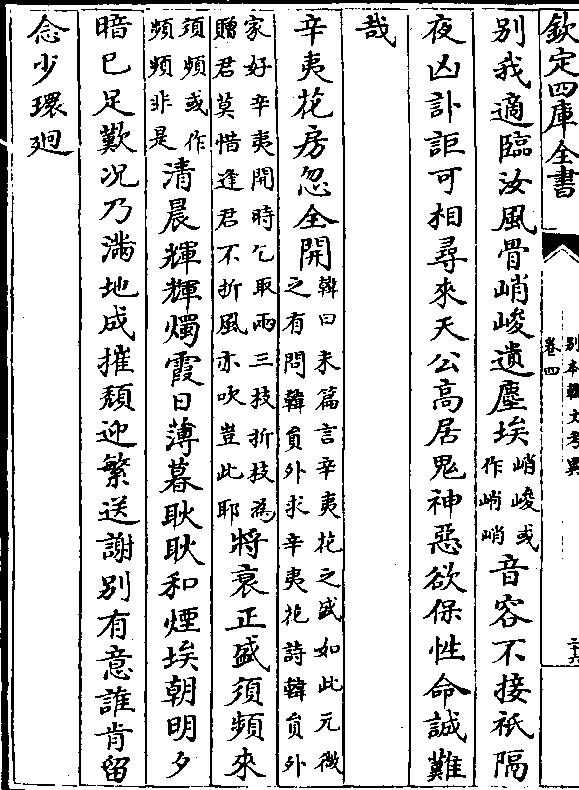 欽定四庫全書
別本韓文考異
卷四
二十六
別我適臨汝風骨峭峻遺塵埃峭峻或作峭峭音容不接秖隔
夜凶訃詎可相尋來天公高居鬼神惡欲保性命誠難
哉
辛夷花房忽全開韓曰末篇言辛夷花之盛如此元微之有問韓員外求辛夷花詩韓員外
家好辛夷開時乞取兩三枝折枝為贈君莫惜逢君不折風亦吹豈此耶將衰正盛須頻來
須頻或作頻頻非是清晨輝輝燭霞日薄暮耿耿和煙埃朝明夕
暗已足歎况乃滿地成摧頹迎繁送謝別有意誰肯留
念少環廻